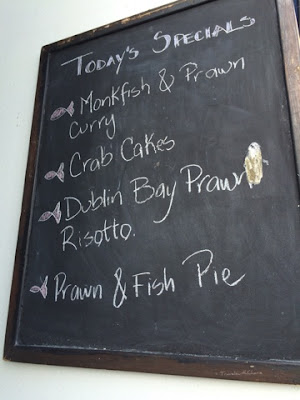 Today's Specials
Monkfish & Prawn
Curry
Crab Cakes
Dublin Bay Prawn
Risotto.
Prawn & Fish Pie